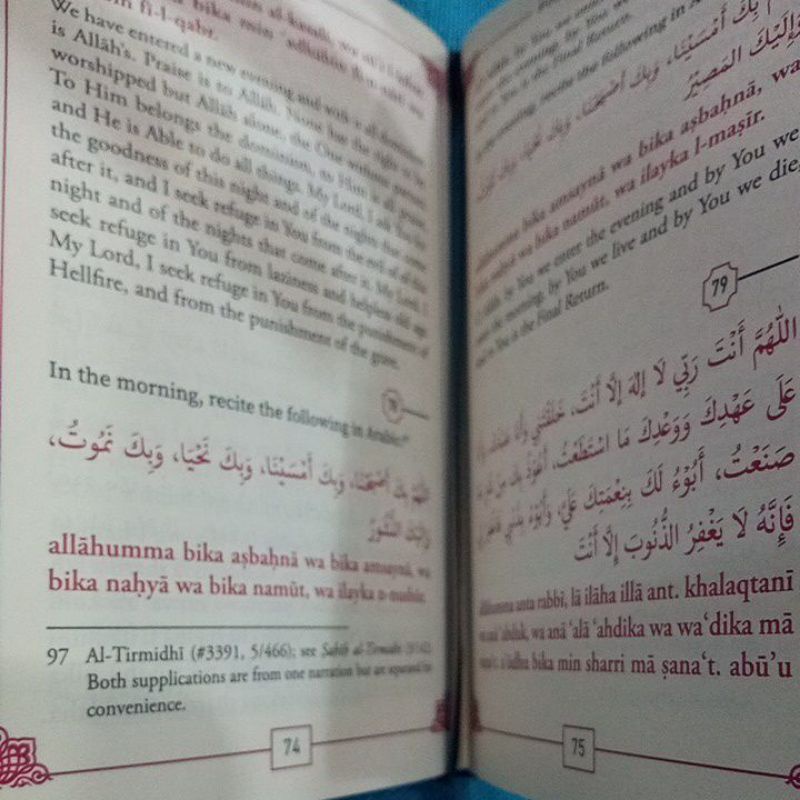 fi-l-qabr.
We have entered a new evening and with it all dominion
is Allāh's. Praise is to Allāh. None has the right to be
worshipped but Allāh alone, the One without partner.
To Him belongs the dominion, to Him is all praise
and He is Able to do all things. My Lord, I ask You for
the goodness of this night and of the nights that come
after it, and I seek refuge in You from the evil of this
night and of the nights that come after it. My Lord, I
seek refuge in You from laziness and helpless old age.
My Lord, I seek refuge in You from the punishment of
Hellfire, and from the punishment of the grave.
78
In the morning, recite the following in Arabic:97
اللَّهُمَّ بِكَ أَصْبَحْنَا، وَبِكَ أَمْسَيْنَا، وَبِكَ نَحْيَا، وَبِكَ نَمُوتُ،
وَإِلَيْكَ النُّشُورُ
allāhumma bika aṣbaḥnā wa bika amsaynā, wa
bika naḥyā wa bika namūt, wa ilayka n-nushūr.
97 Al-Tirmidhī (#3391, 5/466); see Ṣaḥīḥ al-Tirmidhī
Both supplications are from one narration but are separated for
convenience.
74
recite the following in
بِكَ أَمْسَيْنَا، وَبِكَ أَصْبَحْنَا، وَبِكَ نَحْيَا، وَبِكَ نَمُوتُ
وَإِلَيْكَ الْمَصِيرُ
allāhumma bika amsaynā wa bika aṣbaḥnā, wa
bika naḥyā wa bika namūt, wa ilayka l-maṣīr.
by You we enter the evening and by You we
the morning, by You we live and by You we die,
and to You is the Final Return.
79
اللَّهُمَّ أَنْتَ رَبِّي لَا إِلَهَ إِلَّا أَنْتَ، خَلَقْتَنِي وَأَنَا عَبْدُكَ، وَأَنَا
عَلَى عَهْدِكَ وَوَعْدِكَ مَا اسْتَطَعْتُ، أَعُوذُ بِكَ مِنْ شَرِّ مَا
صَنَعْتُ، أَبُوْءُ لَكَ بِنِعْمَتِكَ عَلَيَّ، وَأَبُوْءُ بِذَنْبِي فَاغْفِرْ لِي
فَإِنَّهُ لَا يَغْفِرُ الذُّنُوبَ إِلَّا أَنْتَ
allāhumma anta rabbī, lā ilāha illā ant. khalaqtanī
wa anā 'abduk, wa anā 'alā 'ahdika wa wa'dika mā
a'ūdhu bika min sharri mā ṣana't. abū'u
75